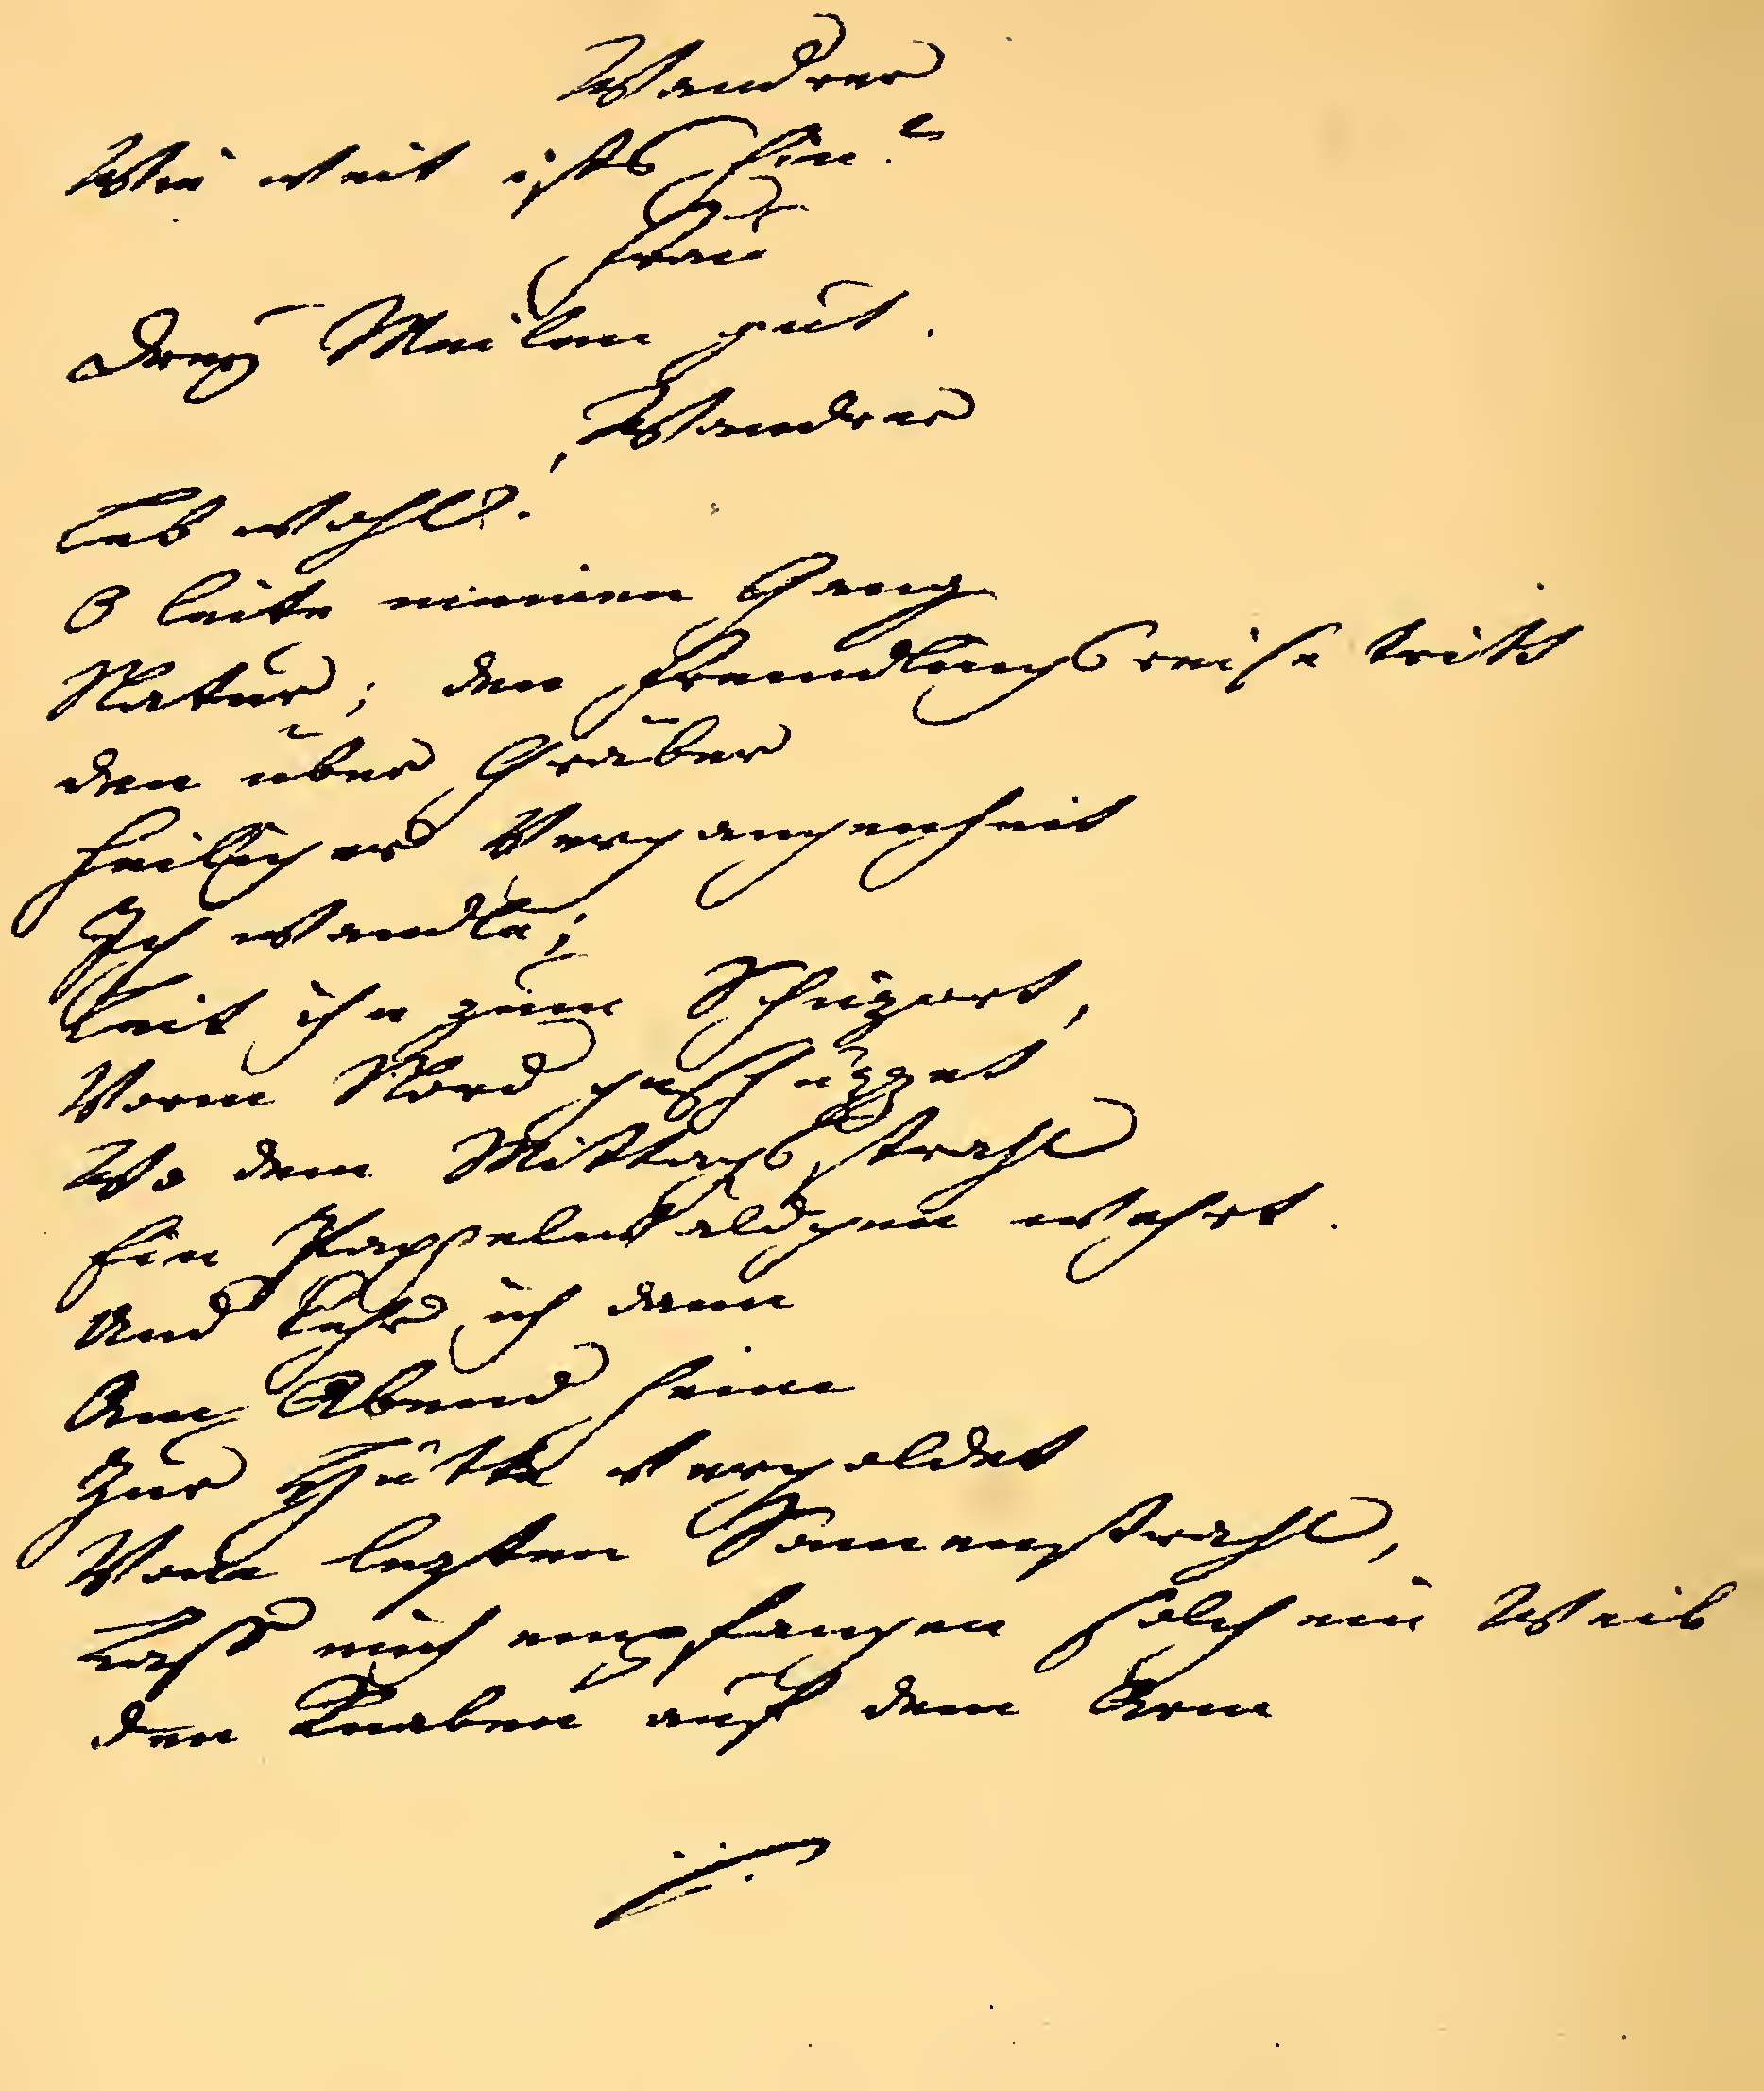 Wandrer
Wie weit ists hin?
Frau
Drey Meilen gut.
Wandrer
Leb wohl.
O leite meinen Gang
Natur; den Fremdlings reise tritt
den über Gräber
heiliger Vergangenheit
Ich wandle;
Leit ihn zum Schuzort,
Vorm Nord geschüzzet
Wo dem Mittags strahl
Ein Pappelwäldgen wehrt.
Und kehr ich dann
Am Abend heim
Zur Hütte vergoldet
Vom lezten Sonnenstrahl,
Lass mich empfangen solch ein Weib
den Knaben auf dem Arm